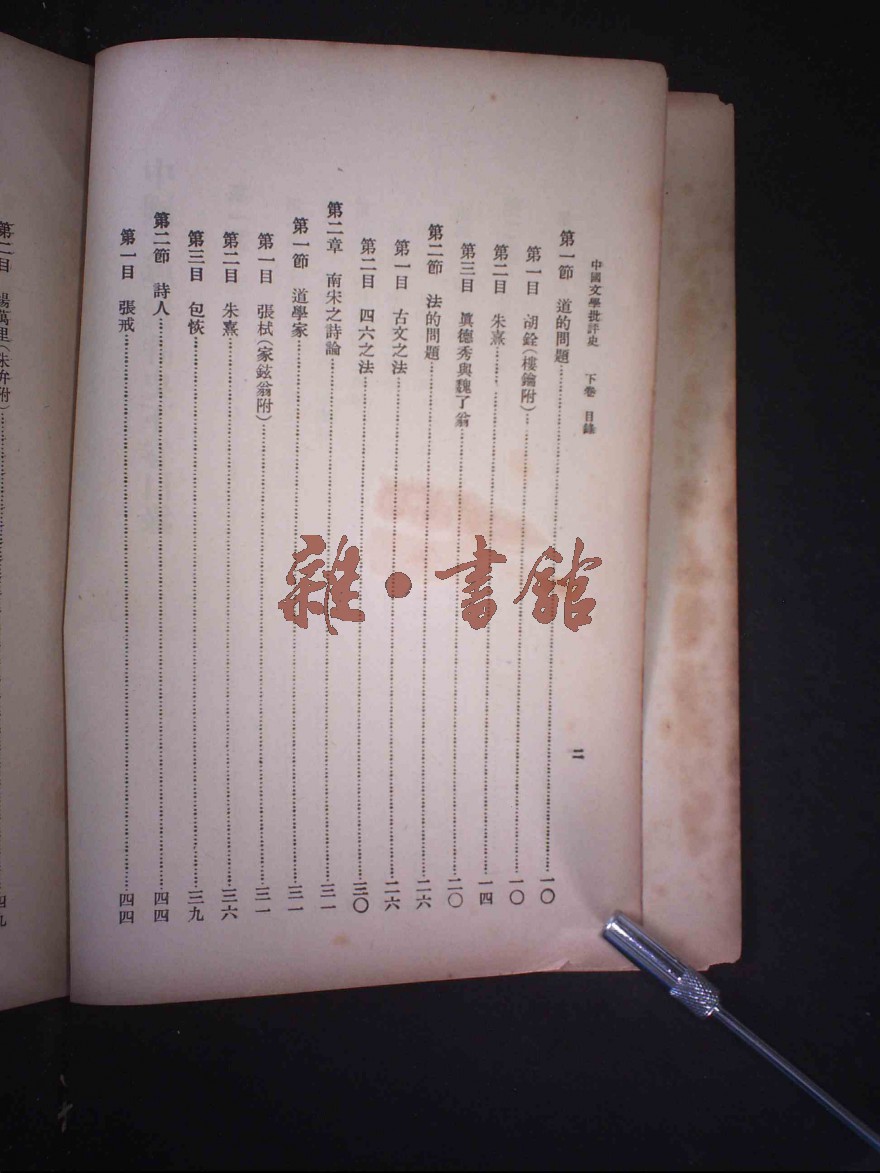 中國文學批評史　下卷　目錄
二
第一節　道的問題……一〇
第一目　胡銓(樓鑰附)……一〇
第二目　朱熹……一四
第三目　眞德秀與魏了翁……二〇
第二節　法的問題……二六
第一目　古文之法……二六
第二目　四六之法……三〇
第二章　南宋之詩論……三一
第一節　道學家……三一
第一目　張栻(家鉉翁附)……三一
第二目　朱熹……三六
第三目　包恢……三九
第二節　詩人……四四
第一目　張戒……四四
第二目　楊萬里(朱弁附)……四九
雜·書館